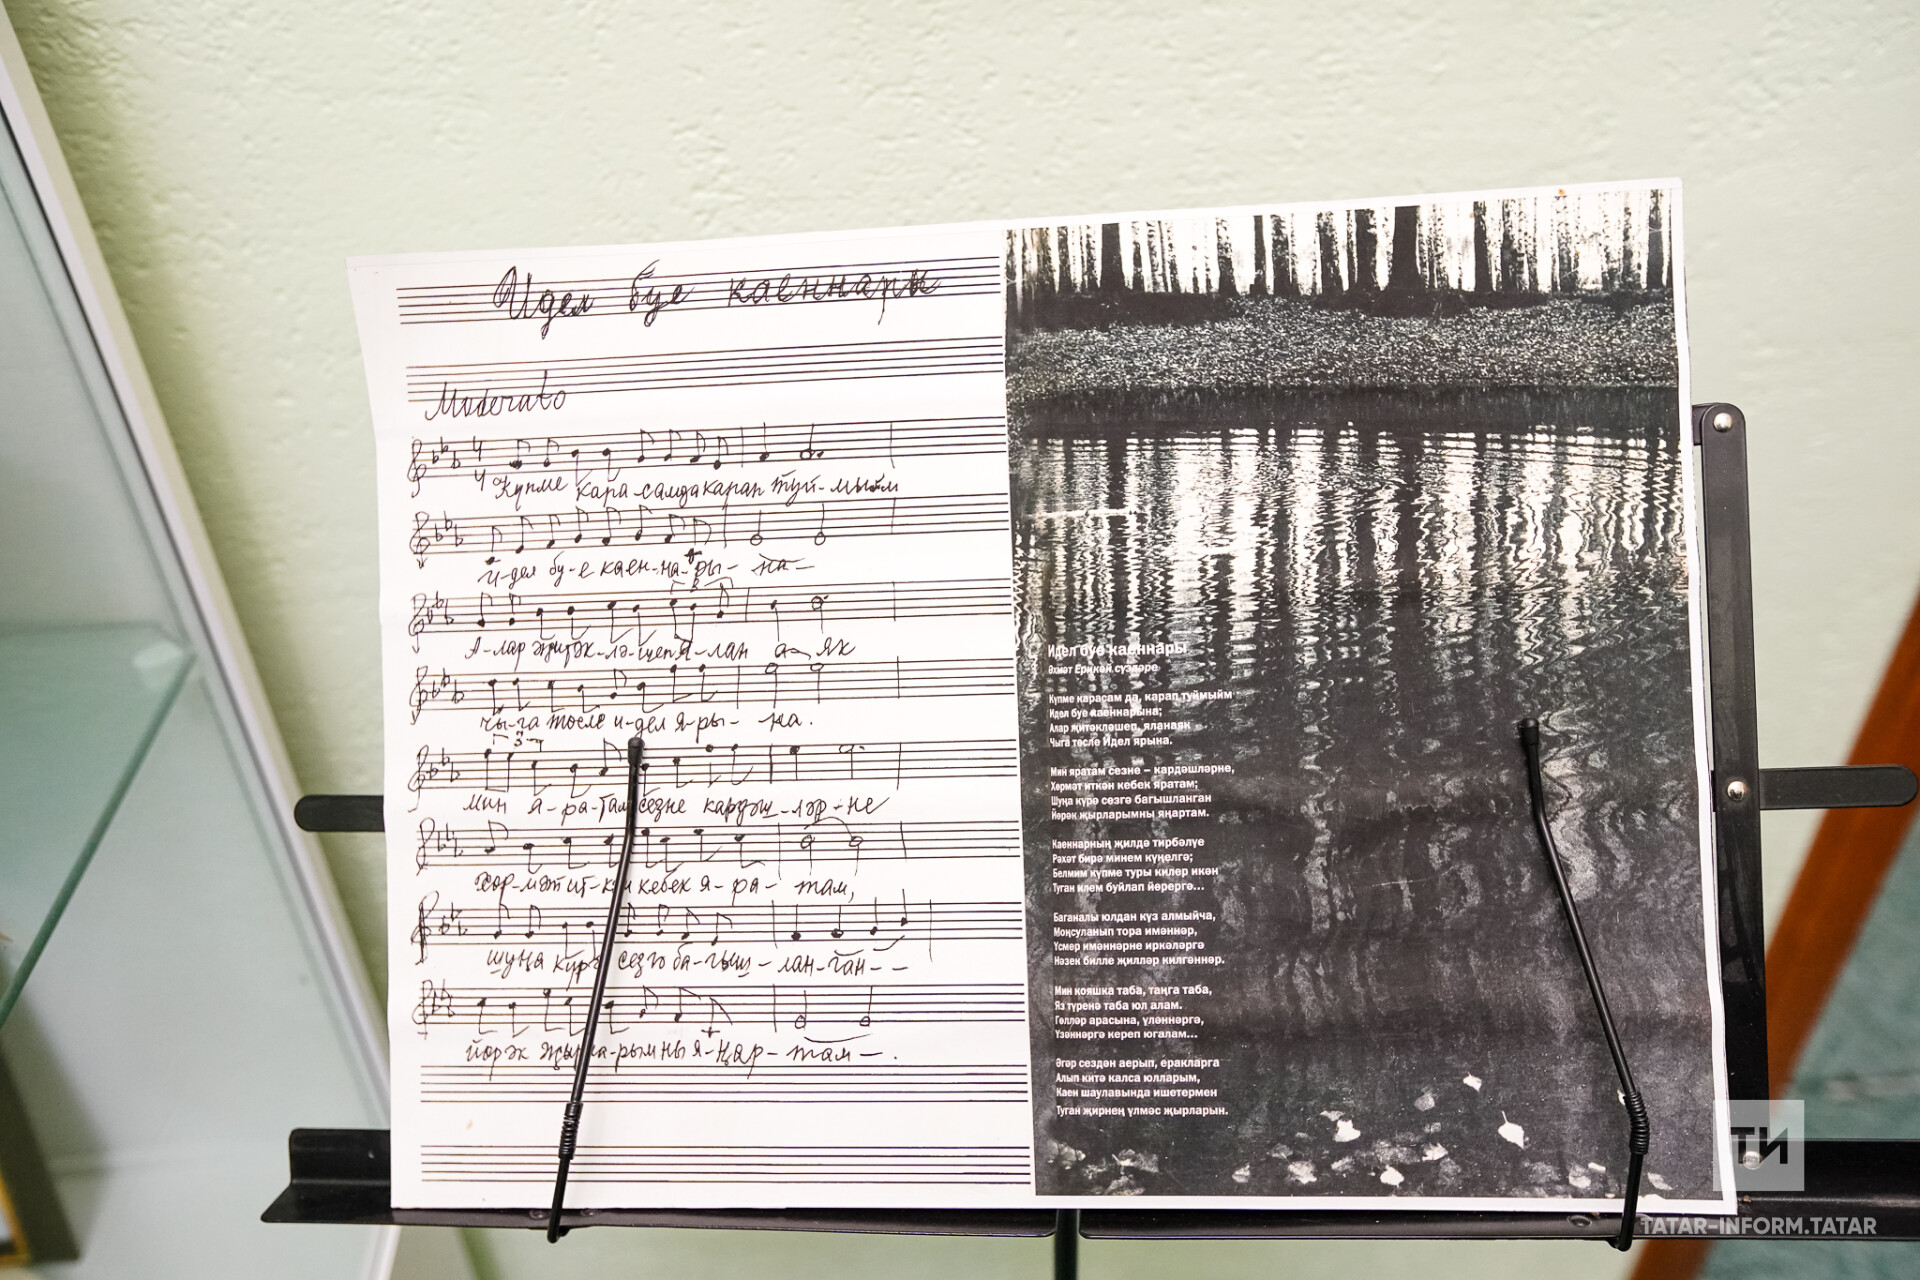 Идел буе каеннары
Moderato
Күпме кара-самда карап туй-мыйм
И-дел бу-е каен-на-ры-на-
А-лар җитәк-лә-шеп я-лан а-як
чы-га төсле и-дел я-ры-на.
3
Мин я-ра-там сезне кардәш-ләр-не
Хөр-мәт ит-кән кебек я-ра-там,
шуңа күрә сезгә ба-гыш-лан-ган--
йөрәк җырла-рымны я-ңар-там-.
Идел буе каеннары
Әхмәт Ерикәй сүзләре
Күпме карасам да, карап туймыйм
Идел буе каеннарына;
Алар җитәкләшеп, яланаяк
Чыга төсле Идел ярына.
Мин яратам сезне – кардәшләрне,
Хөрмәт иткән кебек яратам;
Шуңа күрә сезгә багышланган
Йөрәк җырларымны яңартам.
Каеннарның җилдә тирбәлүе
Рәхәт бирә минем күңелгә;
Белмим күпме туры килер икән
Туган илем буйлап йөрергә...
Баганалы юлдан күз алмыйча,
Моңсуланып тора имәннәр,
Үсмер имәннәрне иркәләргә
Нәзек билле җилләр килгәннәр.
Мин кояшка таба, таңга таба,
Яз түренә таба юл алам.
Гөлләр арасына, үләннәргә,
Үзәннәргә кереп югалам...
Әгәр сездән аерып, еракларга
Алып китә калса юлларым,
Каен шаулавында ишетермен
Туган җирнең үлмәс җырларын.
ТИ
TATAR-INFORM.TATAR